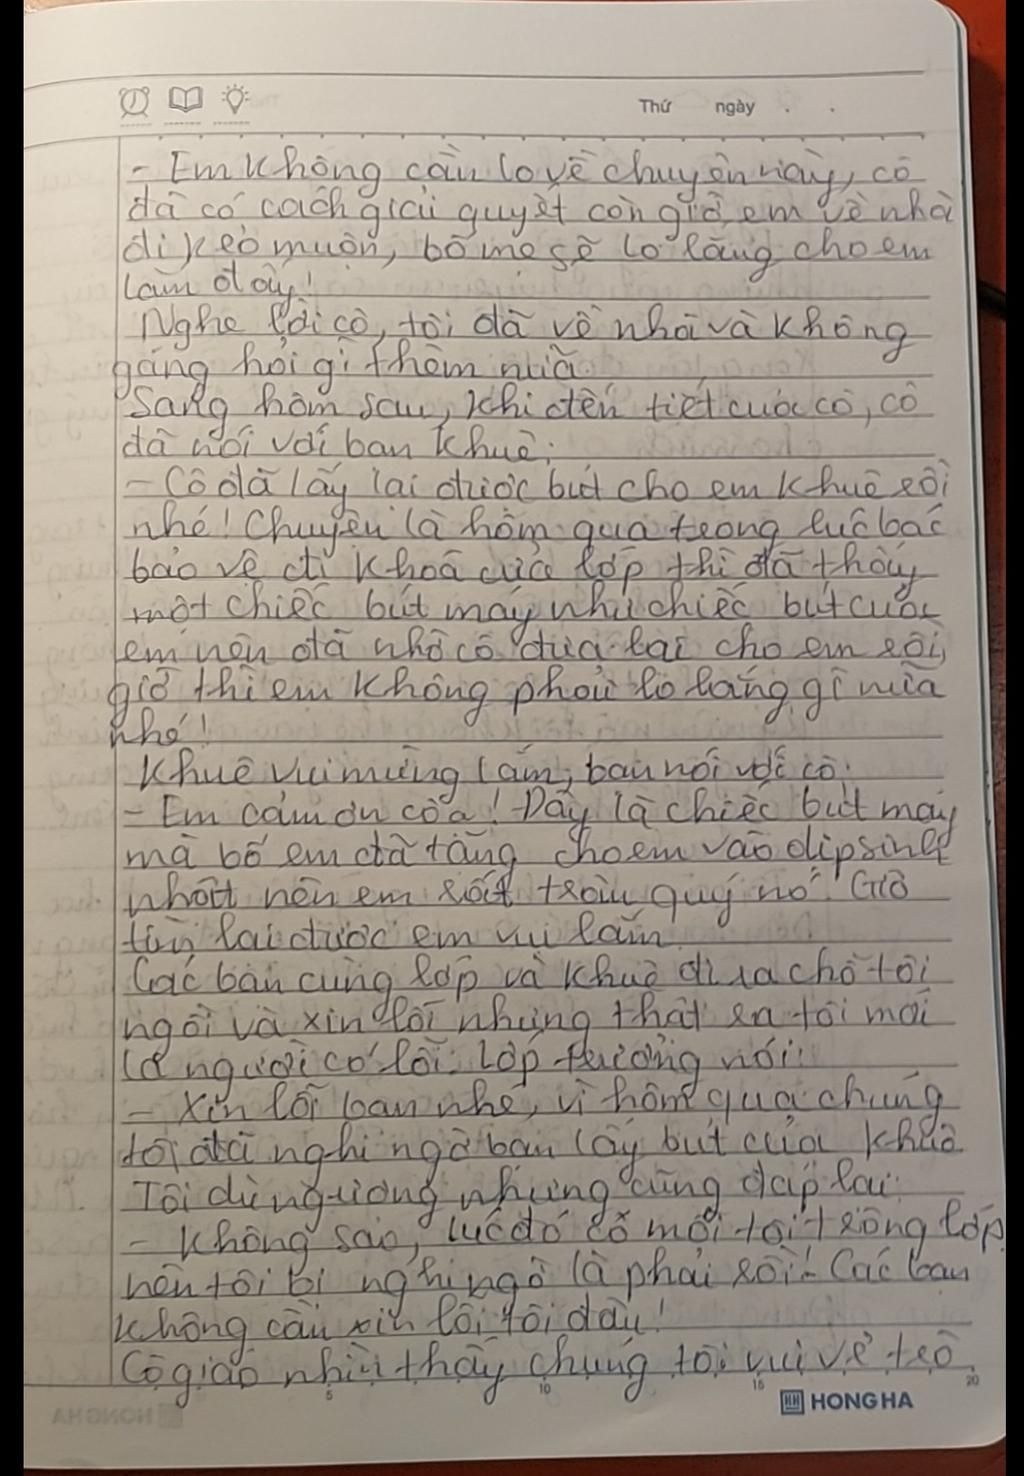 Thứ ngày . .
- Em không cần lo về chuyện này, cô
đã có cách giải quyết còn giờ em về nhà
đi kẻo muộn, bố mẹ sẽ lo lắng cho em
lắm đấy!
Nghe lời cô, tôi đã về nhà và không
gáng hỏi gì thêm nữa.
Sang hôm sau, khi đến tiết của cô, cô
đã nói với bạn Khuê:
- Cô đã lấy lại được bút cho em Khuê rồi
nhé! Chuyện là hôm qua trong lúc bác
bảo vệ đi khoá cửa lớp thì đã thấy
một chiếc bút máy như chiếc bút của
em nên đã nhờ cô đưa lại cho em rồi,
giờ thì em không phải lo lắng gì nữa
nhé!
Khuê vui mừng lắm, bạn nói với cô:
- Em cảm ơn cô ạ! Đây là chiếc bút máy
mà bố em đã tặng cho em vào dịp sinh
nhật nên em rất trân quý nó. Giờ
tìm lại được em vui lắm.
Các bạn cùng lớp và Khuê đi ra chỗ tôi
ngồi và xin lỗi nhưng thật ra tôi mới
là người có lỗi. Lớp trưởng nói:
- Xin lỗi bạn nhé, vì hôm qua chúng
tôi đã nghi ngờ bạn lấy bút của Khuê.
Tôi dù ngượng nhưng cũng đáp lại:
- Không sao, lúc đó có mỗi tôi trong lớp
nên tôi bị nghi ngờ là phải rồi! Các bạn
không cần xin lỗi tôi đâu!
Cô giáo nhìn thấy chúng tôi vui vẻ trò
5 10 15 20
HONG HA